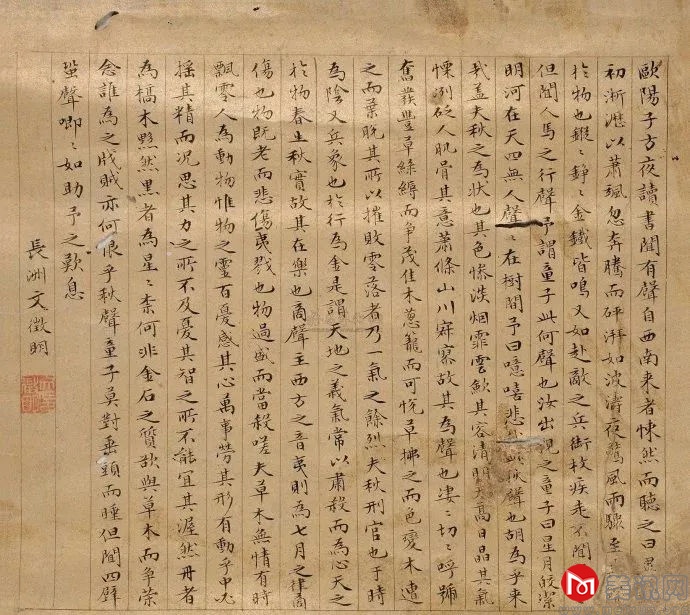 歐陽子方夜讀書聞有聲自西南来者悚然而聽之曰異
初淅瀝以蕭颯忽奔騰而砰湃如波濤夜驚風雨驟至
於物也鏦〻錚〻金鐵皆鳴又如赴敵之兵銜枚疾走不聞
但聞人馬之行聲予謂童子此何聲也汝出視之童子曰星月皎潔
明河在天四無人聲〻在樹間予曰噫嘻悲此秋聲也胡為乎来
哉盖夫秋之為状也其色惨淡烟霏雲歛其容清明天高日晶其氣
慄冽砭人肌骨其意蕭條山川寂寥故其為聲也凄〻切〻呼號
奮發豐草綠縟而争茂佳木葱籠而可悦草拂之而色變木遭
之而葉脱其所以摧敗零落者乃一氣之餘烈夫秋刑官也于時
為陰又兵象也於行為金是謂天地之義氣常以肅殺而為心天之
於物春生秋實故其在樂也商聲主西方之音夷則為七月之律商
傷也物既老而悲傷夷戮也物過盛而當殺嗟夫草木無情有時
飄零人為動物惟物之靈百憂感其心萬事勞其形有動乎中必
搖其精而况思其力之所不及憂其智之所不能宜其渥然丹者
為槁木黟然黒者為星〻柰何非金石之質欲與草木而争榮
念誰為之戕賊亦何恨乎秋聲童子莫對垂頭而睡但聞四壁
蛩聲唧〻如助予之歎息
長洲文徵明